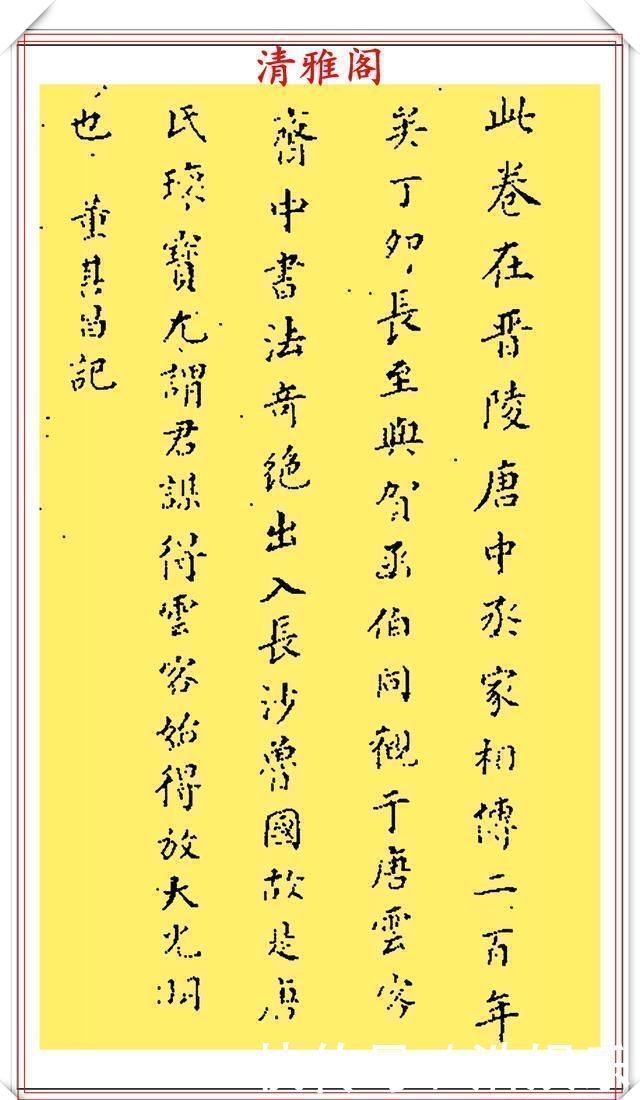 清雅阁
此卷在晋陵唐中丞家相傳二百年
矣丁卯長至與賀函伯同觀于唐雲客
齋中書法奇絕出入長沙魯國故是唐
氏環寶尤謂君謨得雲客始得放大光明
也 董其昌記